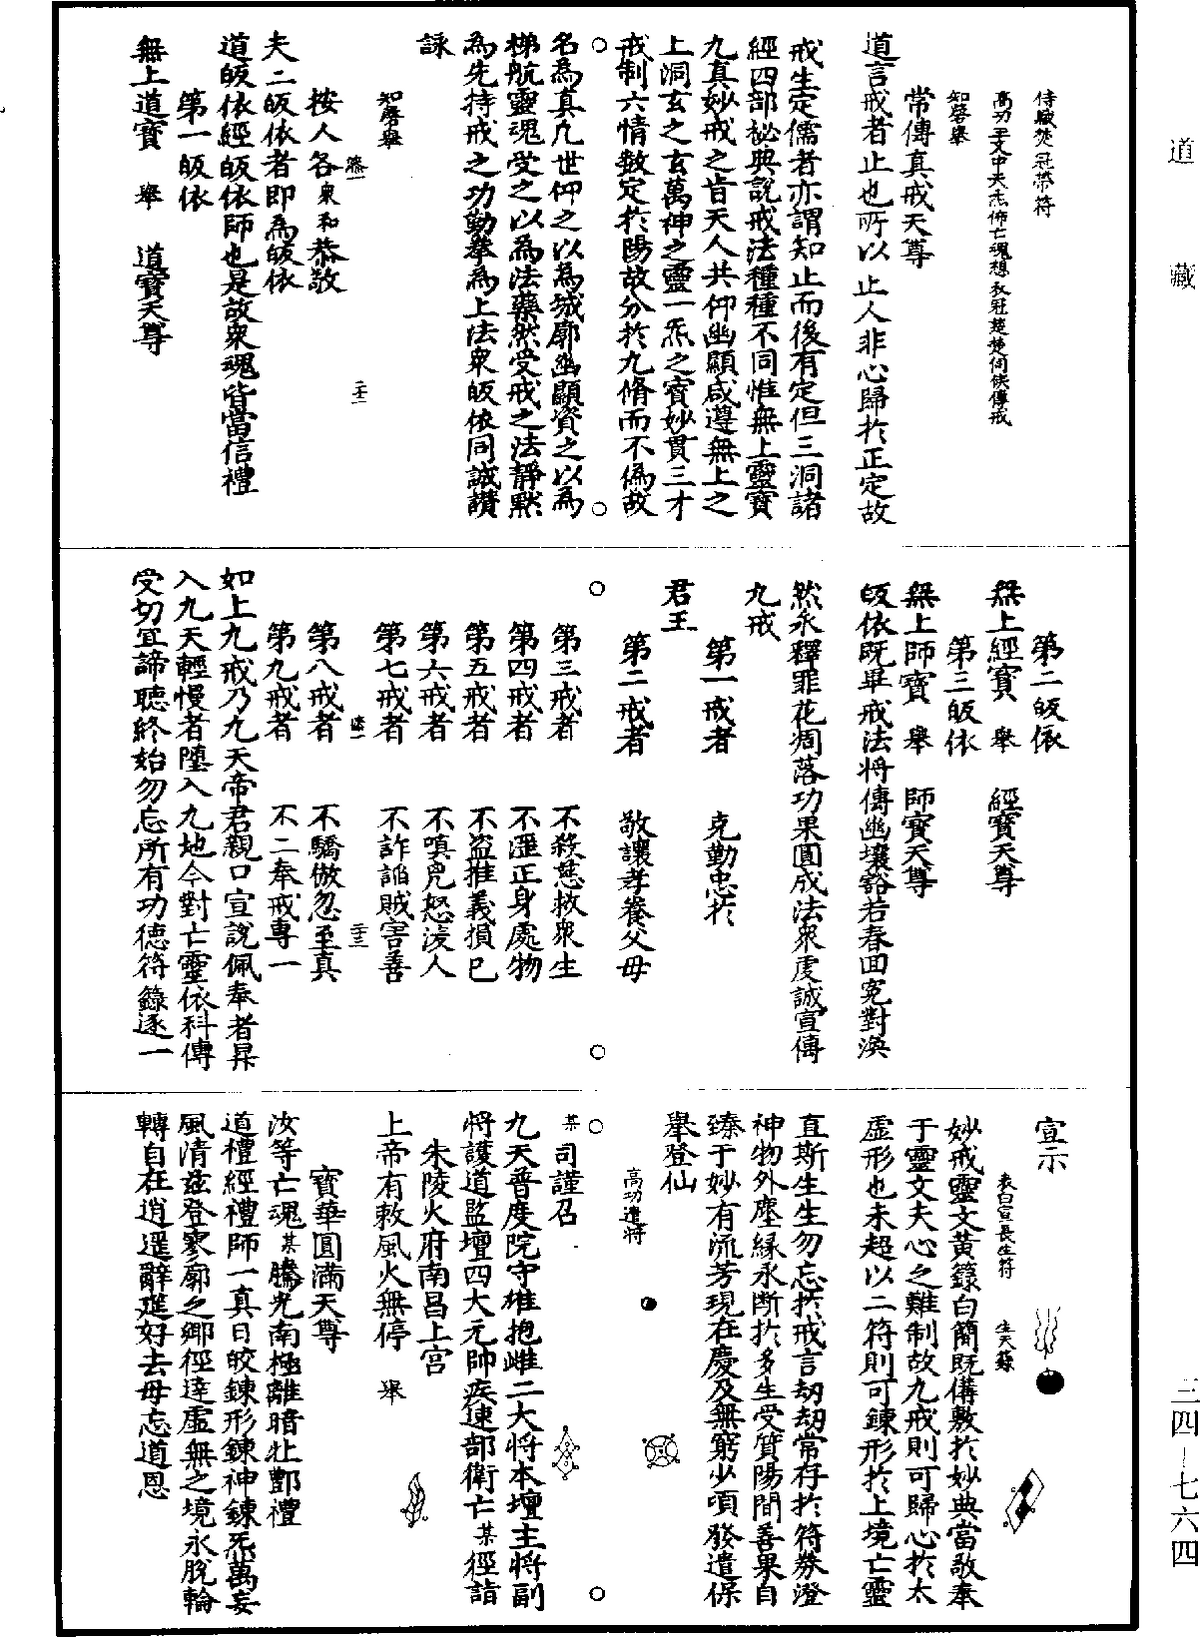 道藏
侍職焚冠帶符
知磬舉
常傳真戒天尊
道言戒者止也所以止人非心歸於正定故
戒生定儒者亦謂知止而後有定但三洞諸
經四部祕典說戒法種種不同惟無上靈寶
九真妙戒之旨天人共仰幽顯咸遵無上之
上洞玄之玄萬神之靈一炁之寶妙貫三才
戒制六情數定於陽故分於九脩而不偽故
名為真九世仰之以為城廓幽顯資之以為
梯航靈魂受之以為法藥然受戒之法靜默
為先持戒之功勤舉為上法衆皈依同誠讚
詠
知磬舉
按人各衆和恭敬
二十二
夫二皈依者即為皈依
道皈依經皈依師也是故衆魂皆當信禮
第一皈依
無上道寶 舉 道寶天尊
第二皈依
無上經寶 舉 經寶天尊
第三皈依
無上師寶 舉 師寶天尊
皈依既畢戒法將傳幽壤豁若春回冤對渙
然永釋罪花凋落功果圓成法衆虔誠宣傳
九戒
第一戒者 克勤忠於
君王
第二戒者 敬讓孝養父母
第三戒者 不殺慈救衆生
第四戒者 不淫正身處物
第五戒者 不盜推義損已
第六戒者 不嗔兇怒凌人
第七戒者 不詐謟賊害善
第八戒者 不驕倣忽至真
二十三
第九戒者 不二奉戒專一
如上九戒乃九天帝君親口宣說佩奉者昇
入九天輕慢者墮入九地今對亡靈依科傳
受切宜諦聽終始勿忘所有功德符籙逐一
宣示
表白宣長生符 生天籙
妙戒靈文黃籙白簡既傋敷於妙典當敬奉
于靈文夫心之難制故九戒則可歸心於太
虛形也未超以二符則可鍊形於上境亡靈
直斯生生勿忘於戒言劫劫常存於符券澄
神物外塵緣永斷於多生受質陽間善果自
臻于妙有流芳現在慶及無窮少頃發遣保
舉登仙
高功遣將
某司謹召
九天普度院守雄抱雌二大將本壇主將副
將護道監壇四大元帥疾速部衛亡某徑詣
朱陵火府南昌上宮
上帝有敕風火無停 舉
寶華圓滿天尊
汝等亡魂某騰光南極離暗壯酆禮
道禮經禮師一真日皎鍊形鍊神鍊炁萬妄
風清兹登寥廓之鄉徑達虛無之境永脫輪
轉自在逍遥辭筵好去毋忘道恩
三四—七六四